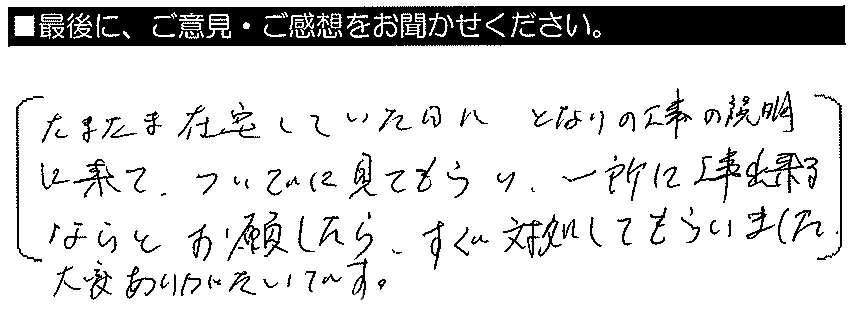 ■最後に、ご意見・ご感想をお聞かせください。
たまたま在宅していた日に となりの工事の説明
に来て、ついでに見てもらい、一所に工事出来る
ならと お願したら、すぐ対処してもらいました。
大変ありがたいです。